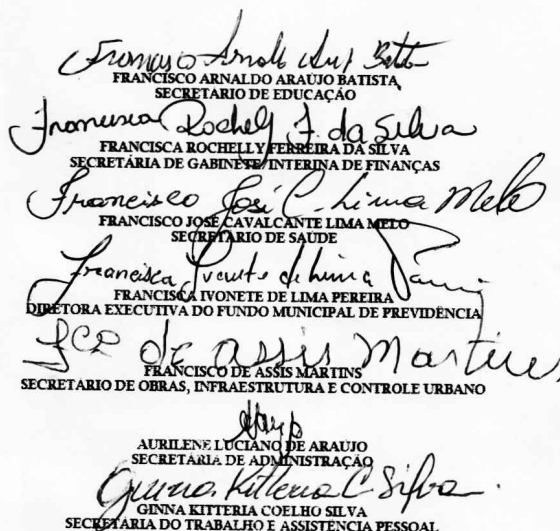 Francisco Arnaldo
FRANCISCO ARNALDO ARAÚJO BATISTA
SECRETARIO DE EDUCAÇÃO
Francisca Rochelly F. da Silva
FRANCISCA ROCHELLY FERREIRA DA SILVA
SECRETÁRIA DE GABINETE/INTERINA DE FINANÇAS
Francisco José C. Lima Melo
FRANCISCO JOSÉ CAVALCANTE LIMA MELO
SECRETÁRIO DE SAÚDE
Francisca Ivonete de Lima
FRANCISCA IVONETE DE LIMA PEREIRA
DIRETORA EXECUTIVA DO FUNDO MUNICIPAL DE PREVIDÊNCIA
de Assis Martins
FRANCISCO DE ASSIS MARTINS
SECRETARIO DE OBRAS, INFRAESTRUTURA E CONTROLE URBANO
AURILENE LUCIANO DE ARAÚJO
SECRETÁRIA DE ADMINISTRAÇÃO
Ginna Kitteria C Silva
GINNA KITTERIA COELHO SILVA
SECRETARIA DO TRABALHO E ASSISTÊNCIA PESSOAL